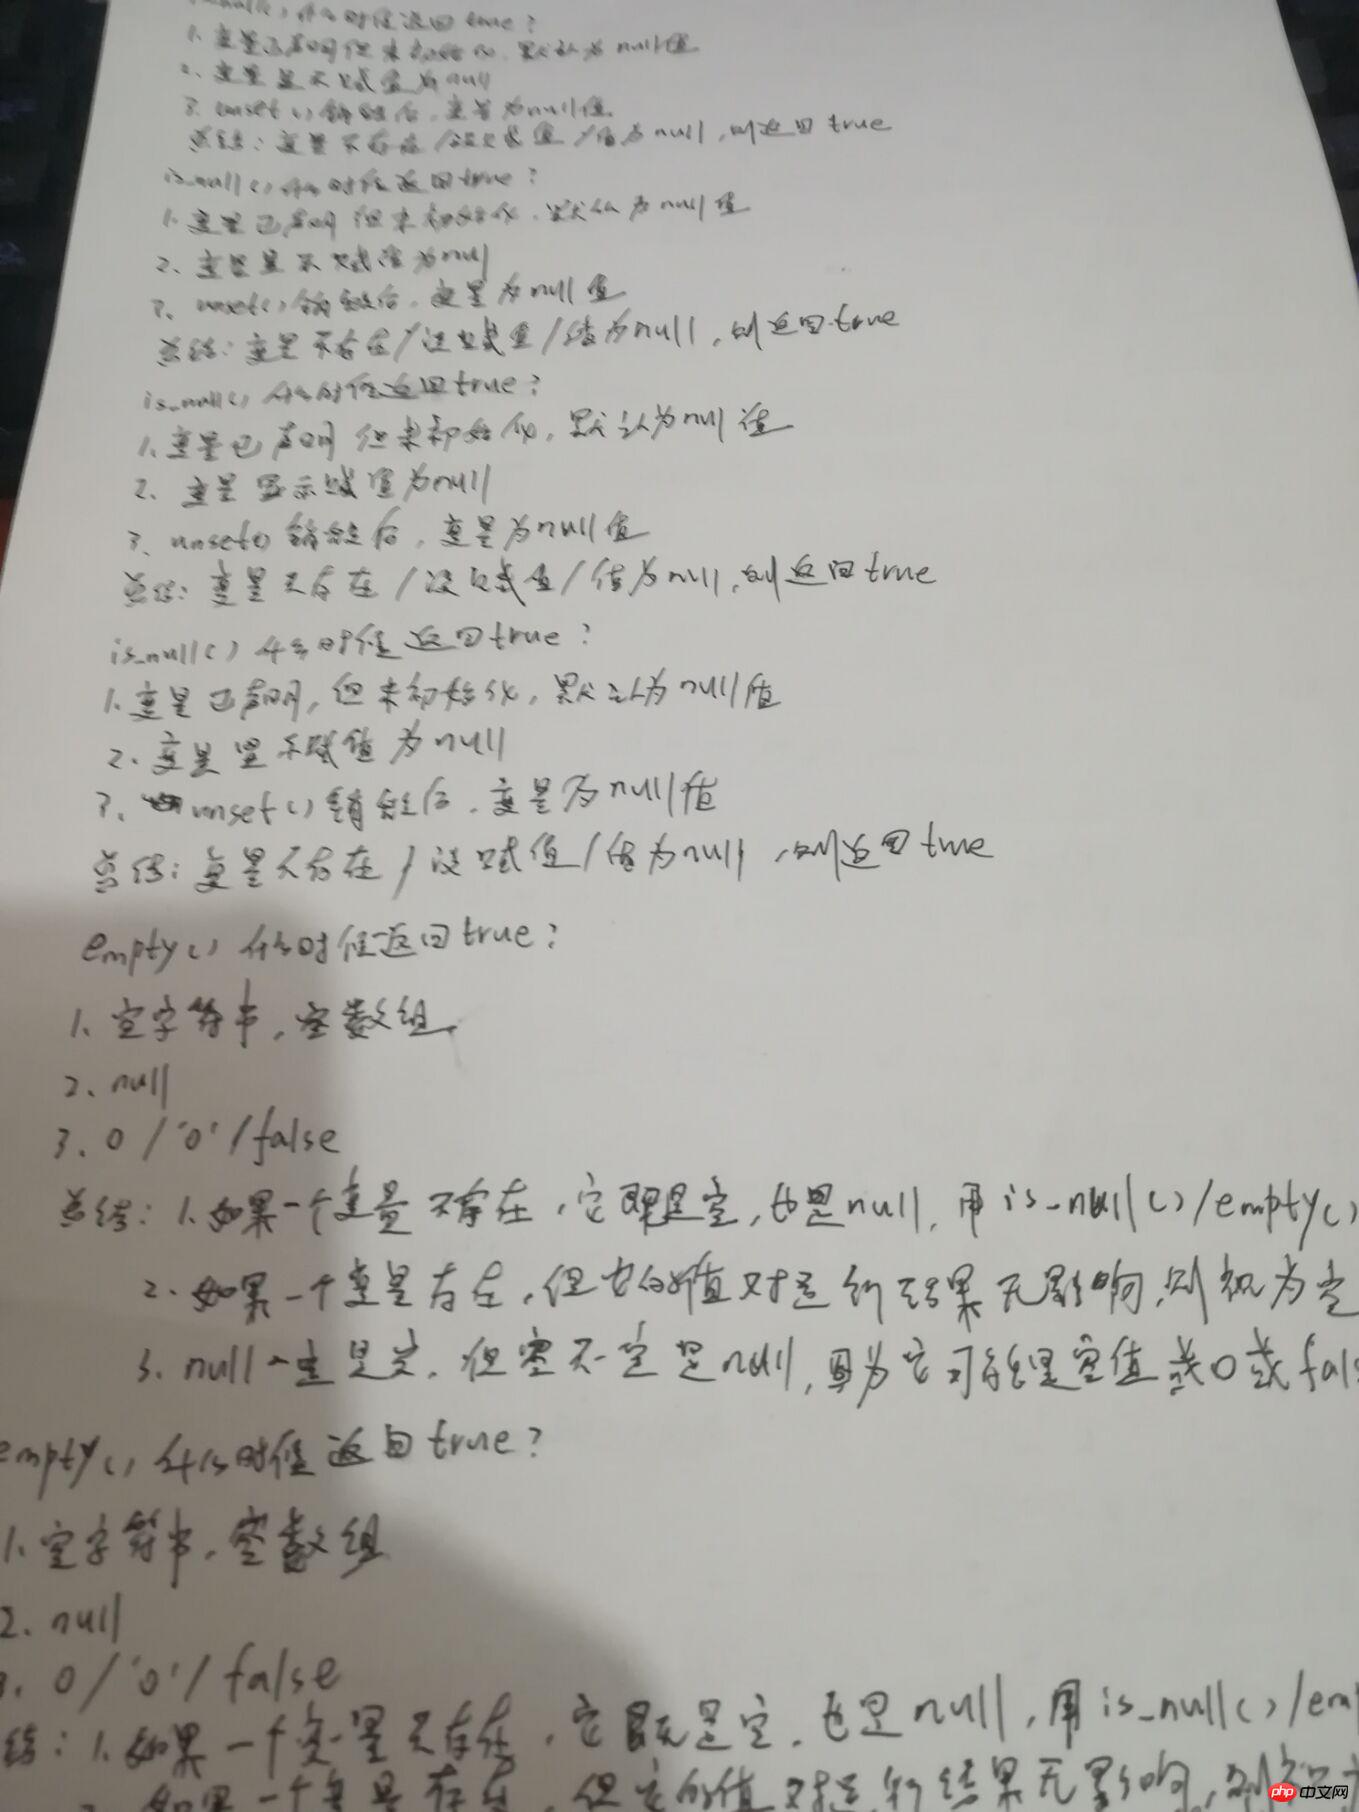 is_null() 什么时候返回true?
1.变量已声明但未初始化,默认为null值
2.变量显示赋值为null
3.unset()销毁后,变量为null值
总结:变量不存在/没赋值/值为null,则返回true
is_null()什么时候返回true?
1.变量已声明但未初始化,默认为null值
2、变量显示赋值为null
3、unset()销毁后,变量为null值
总结:变量不存在/没赋值/值为null,则返回true
is_null()什么时候返回true?
1.变量已声明但未初始化,默认为null值
2、变量显示赋值为null
3、unset()销毁后,变量为null值
总结:变量不存在/没赋值/值为null,则返回true
is_null()什么时候返回true?
1.变量已声明,但未初始化,默认为null值
2、变量显示赋值为null
3、unset()销毁后,变量为null值
总结:变量不存在/没赋值/值为null,则返回true
empty()什么时候返回true?
1、空字符串,空数组
2、null
3、0/'0'/false
总结:1.如果一个变量不存在,它即是空,也是null,用is_null()/empty()
2.如果一个变量存在,但它的值对运行结果无影响,则视为空
3.null一定是空,但空不一定是null,因为它可能是空值或0或fals
empty()什么时候返回true?
1.空字符串,空数组
2.null
3.0/'0'/false
结:1.如果一个变量不存在,它既是空,也是null,用is_null()/em
2.如果一个变量存在,但它的值对运行结果无影响,则视为
php中文网